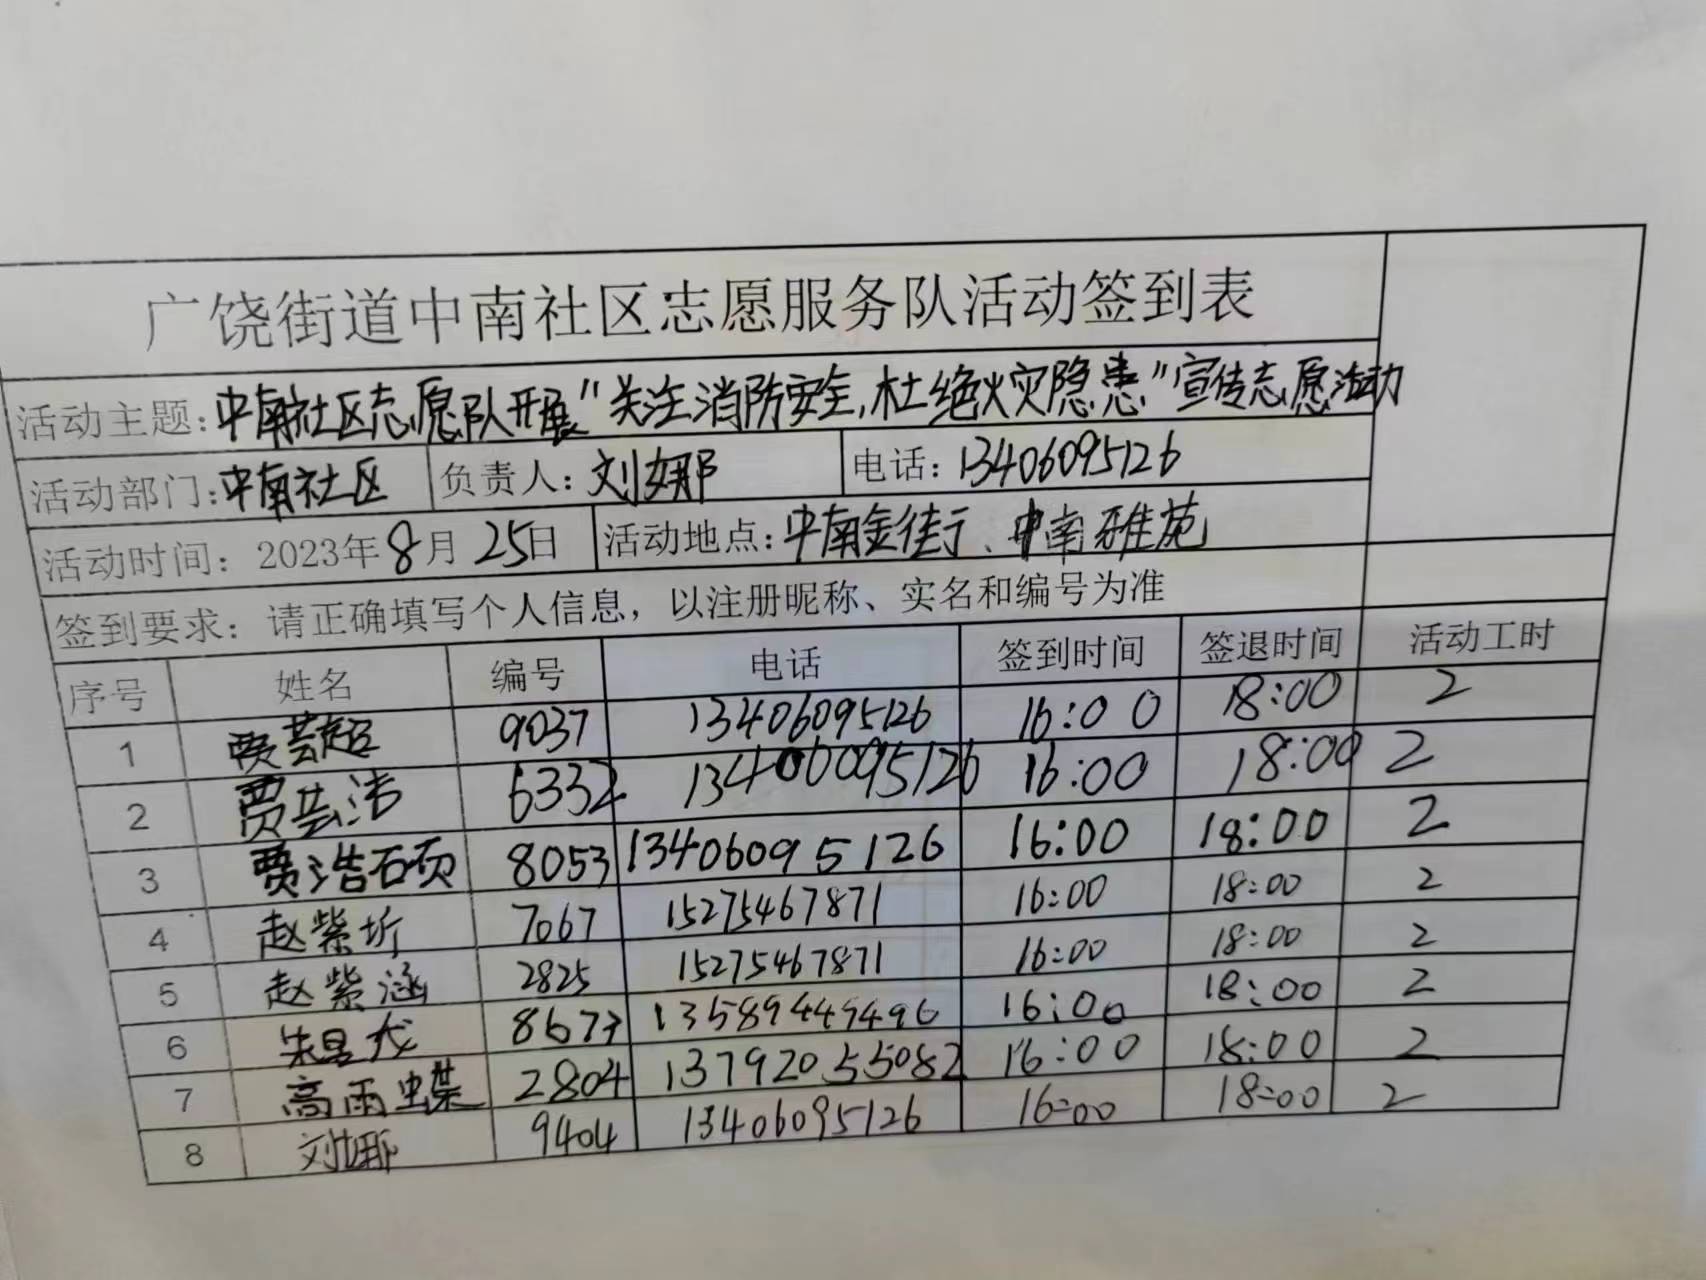 广饶街道中南社区志愿服务队活动签到表
活动主题：中南社区志愿队开展"关注消防安全,杜绝火灾隐患"宣传志愿活动
活动部门：中南社区 负责人：刘娜 电话：13406095126
活动时间：2023年8月25日 活动地点：中南金街、中南雅苑
签到要求：请正确填写个人信息，以注册昵称、实名和编号为准
序号 姓名 编号 电话 签到时间 签退时间 活动工时
1 贾芸超 9037 13406095126 16:00 18:00 2
2 贾芸浩 6332 13406095126 16:00 18:00 2
3 贾浩硕 8053 13406095126 16:00 18:00 2
4 赵紫圻 7067 15275467871 16:00 18:00 2
5 赵紫涵 2825 15275467871 16:00 18:00 2
6 朱昱 8673 13589449496 16:00 18:00 2
7 高雨蝶 2804 13792055082 16:00 18:00 2
8 刘娜 9404 13406095126 16:00 18:00 2